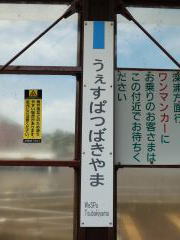 うぇすぱつばきやま
WeSPa
Tsubakiyama
深浦方面行
ワンマンカーに
お乗りのお客さまは
この付近でお待ちく
ださい